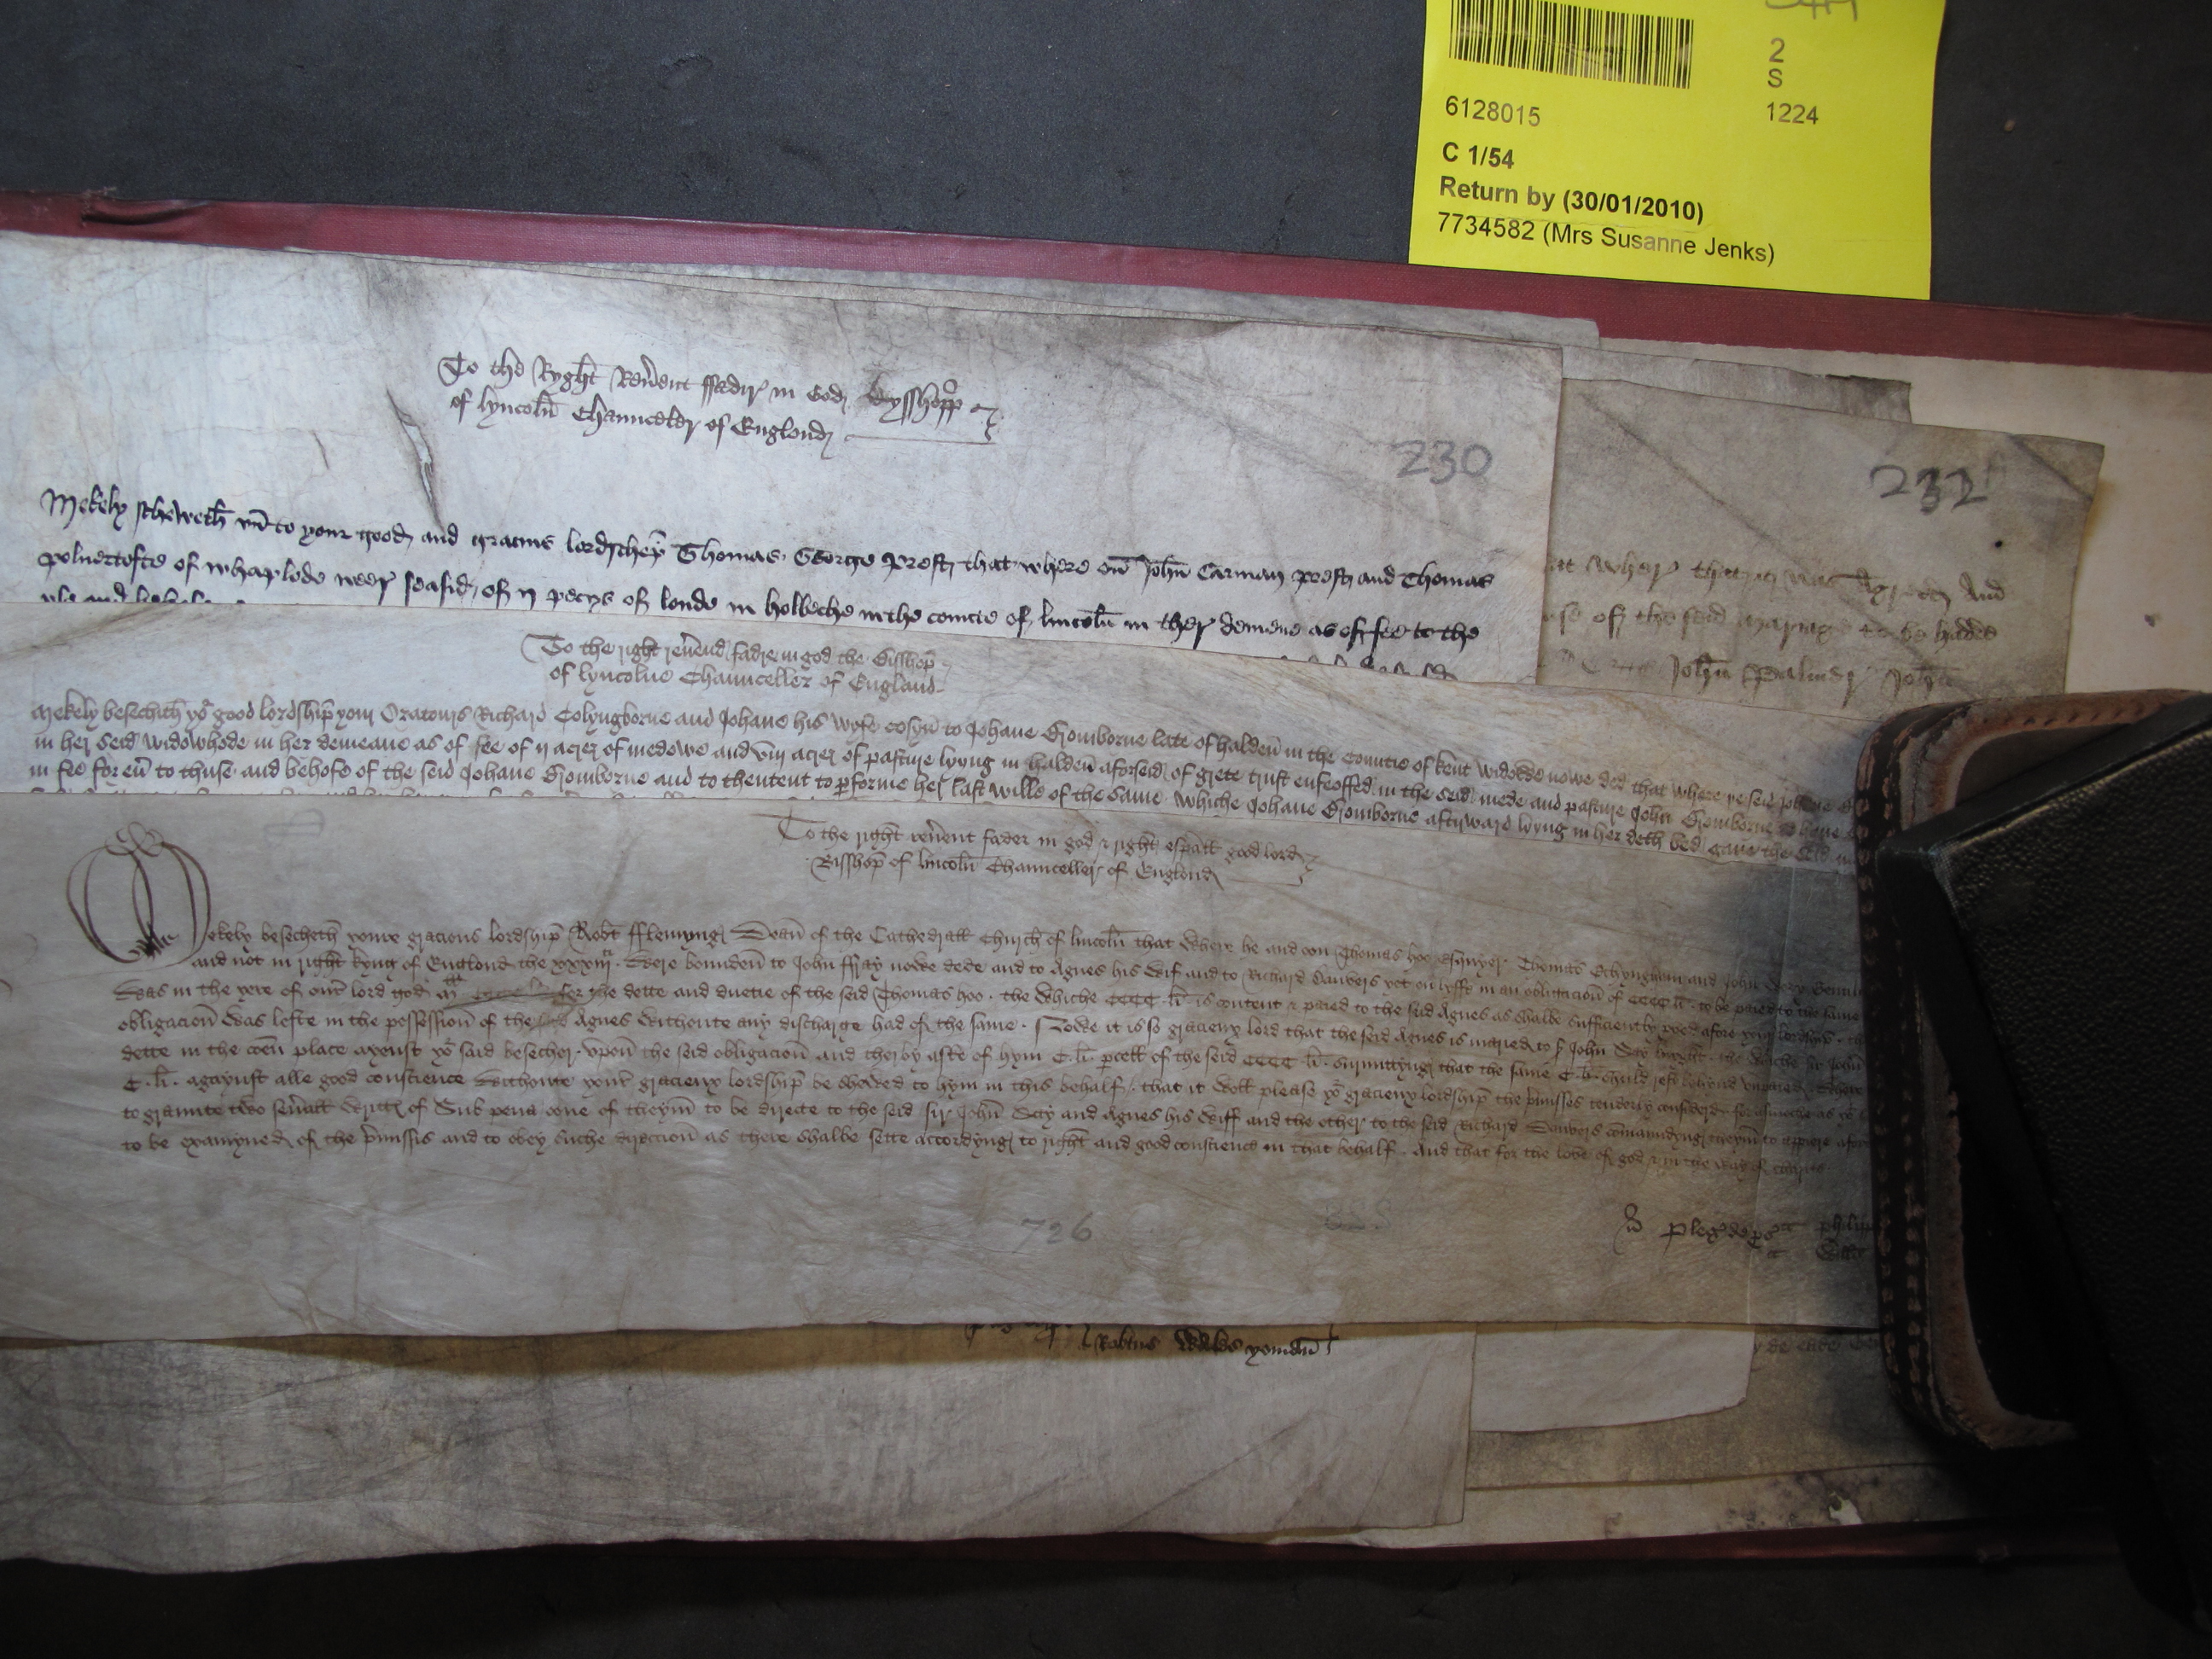 2
S
6128015 1224
C 1/54
Return by (30/01/2010)
7734582 (Mrs Susanne Jenks)
To the Ryght Reverent ffadir in God Bysshopp
of lyncoln Chaunceler of Englond
230
232
Mekely scheweth unto your good and gracius lordschep Thomas George prest that where on John Carman prest and Thomas
poluertofte of whaplode weer seasid of ij pecys of londe in holbeche in the counte of lincoln in ther demene as of fee to the
at wher that it was Agreed And
of the seid mariage to be hadde
John Palmer John
To the right reverend fadre in god the Bisshop
of lyncolne Chaunceller of England
Mekely besechith yor good lordship your Oratours Richard Colyngborne and Johane his wyfe cosyn to Johane Gomborne late of halden in the Countie of kent widowe nowe ded that where ye seid Johane
in her seid widowhode in her demeane as of fee of ij acres of medowe and viij acres of pasture lying in halden aforseid of grete trust enfeoffed in the seid mede and pasture John Gomborne
in fee for eu to thuse and behofe of the seid Johane Gomborne and to thentent to pforme her last wille of the same Whiche Johane Gomborne afterward lyyng in her deth bed gaue the seid
To the right reuent fader in god & right espall good lord
Bisshop of lincoln Chaunceller of Englond
Mekely besecheth youre gracious lordship Robt fflemyng Dean of the Cathedrall Chirch of lincoln that Where he and oon Thomas hoo Esquyer Thomas Echyngham and John
and not in right kyng of Englond the xxxiij Were bounden to John ffray nowe dede and to Agnes his Wif and to Richard Danvers yet on lyffe in an obligacion of CCCC li to be paied to the same
Was in the yere of our lord god for the dette and duetie of the seid Thomas hoo the Whiche CCCC li is content & paied to the seid Agnes as shalbe sufficiently proed afore your lordship
obligacion Was lefte in the possession of the Agnes Withoute any discharge had of the same Nowe it is so gracieux lord that the seid Agnes is maried to John Say knyght the Whiche sir John
dette in the coen place ayenst yor said besecher vpon the seid obligacion and therby aske of hym C li pcell of the seid CCCC li surmittyng that the same C li shuld rest behynd vnpaied
C li agaynst alle good conscience Withoute your gracieux lordship be shewed to hym in this behalf that it Woll please yor gracieux lordship the pmisses tenderly considerd forasmoche as yor
to graunte two seuall Writtes of Sub pena oone of theym to be directe to the seid sir John Say and Agnes his Wiff and the other to the seid Richard Danvers comaundyng theym to appiere afore
to be examyned of the pmissis and to obey suche direccion as there shalbe sette accordyng to right and good conscience in that behalf And that for the love of god & in the Way of charite
726
pleg de ps
Robtus yoman